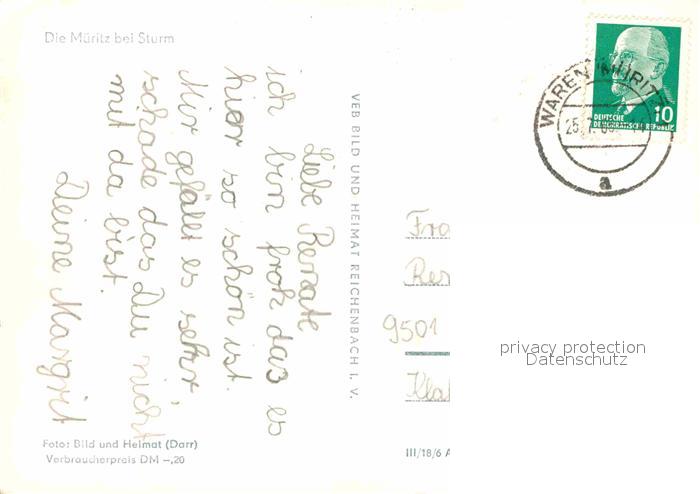 Die Müritz bei Sturm
Liebe Renate
ich bin froh das es
hier so schön ist.
Mir gefällt es sehr,
schade das Du nicht
mit da bist.
Deine Margrit
VEB BILD UND HEIMAT REICHENBACH I. V.
Foto: Bild und Heimat (Darr)
Verbraucherpreis DM –,20
III/18/6 A
WAREN (MÜRITZ)
25.7.
a
10
DEUTSCHE
DEMOKRATISCHE REPUBLIK
Fra
Res
9501
Kla
privacy protection
Datenschutz